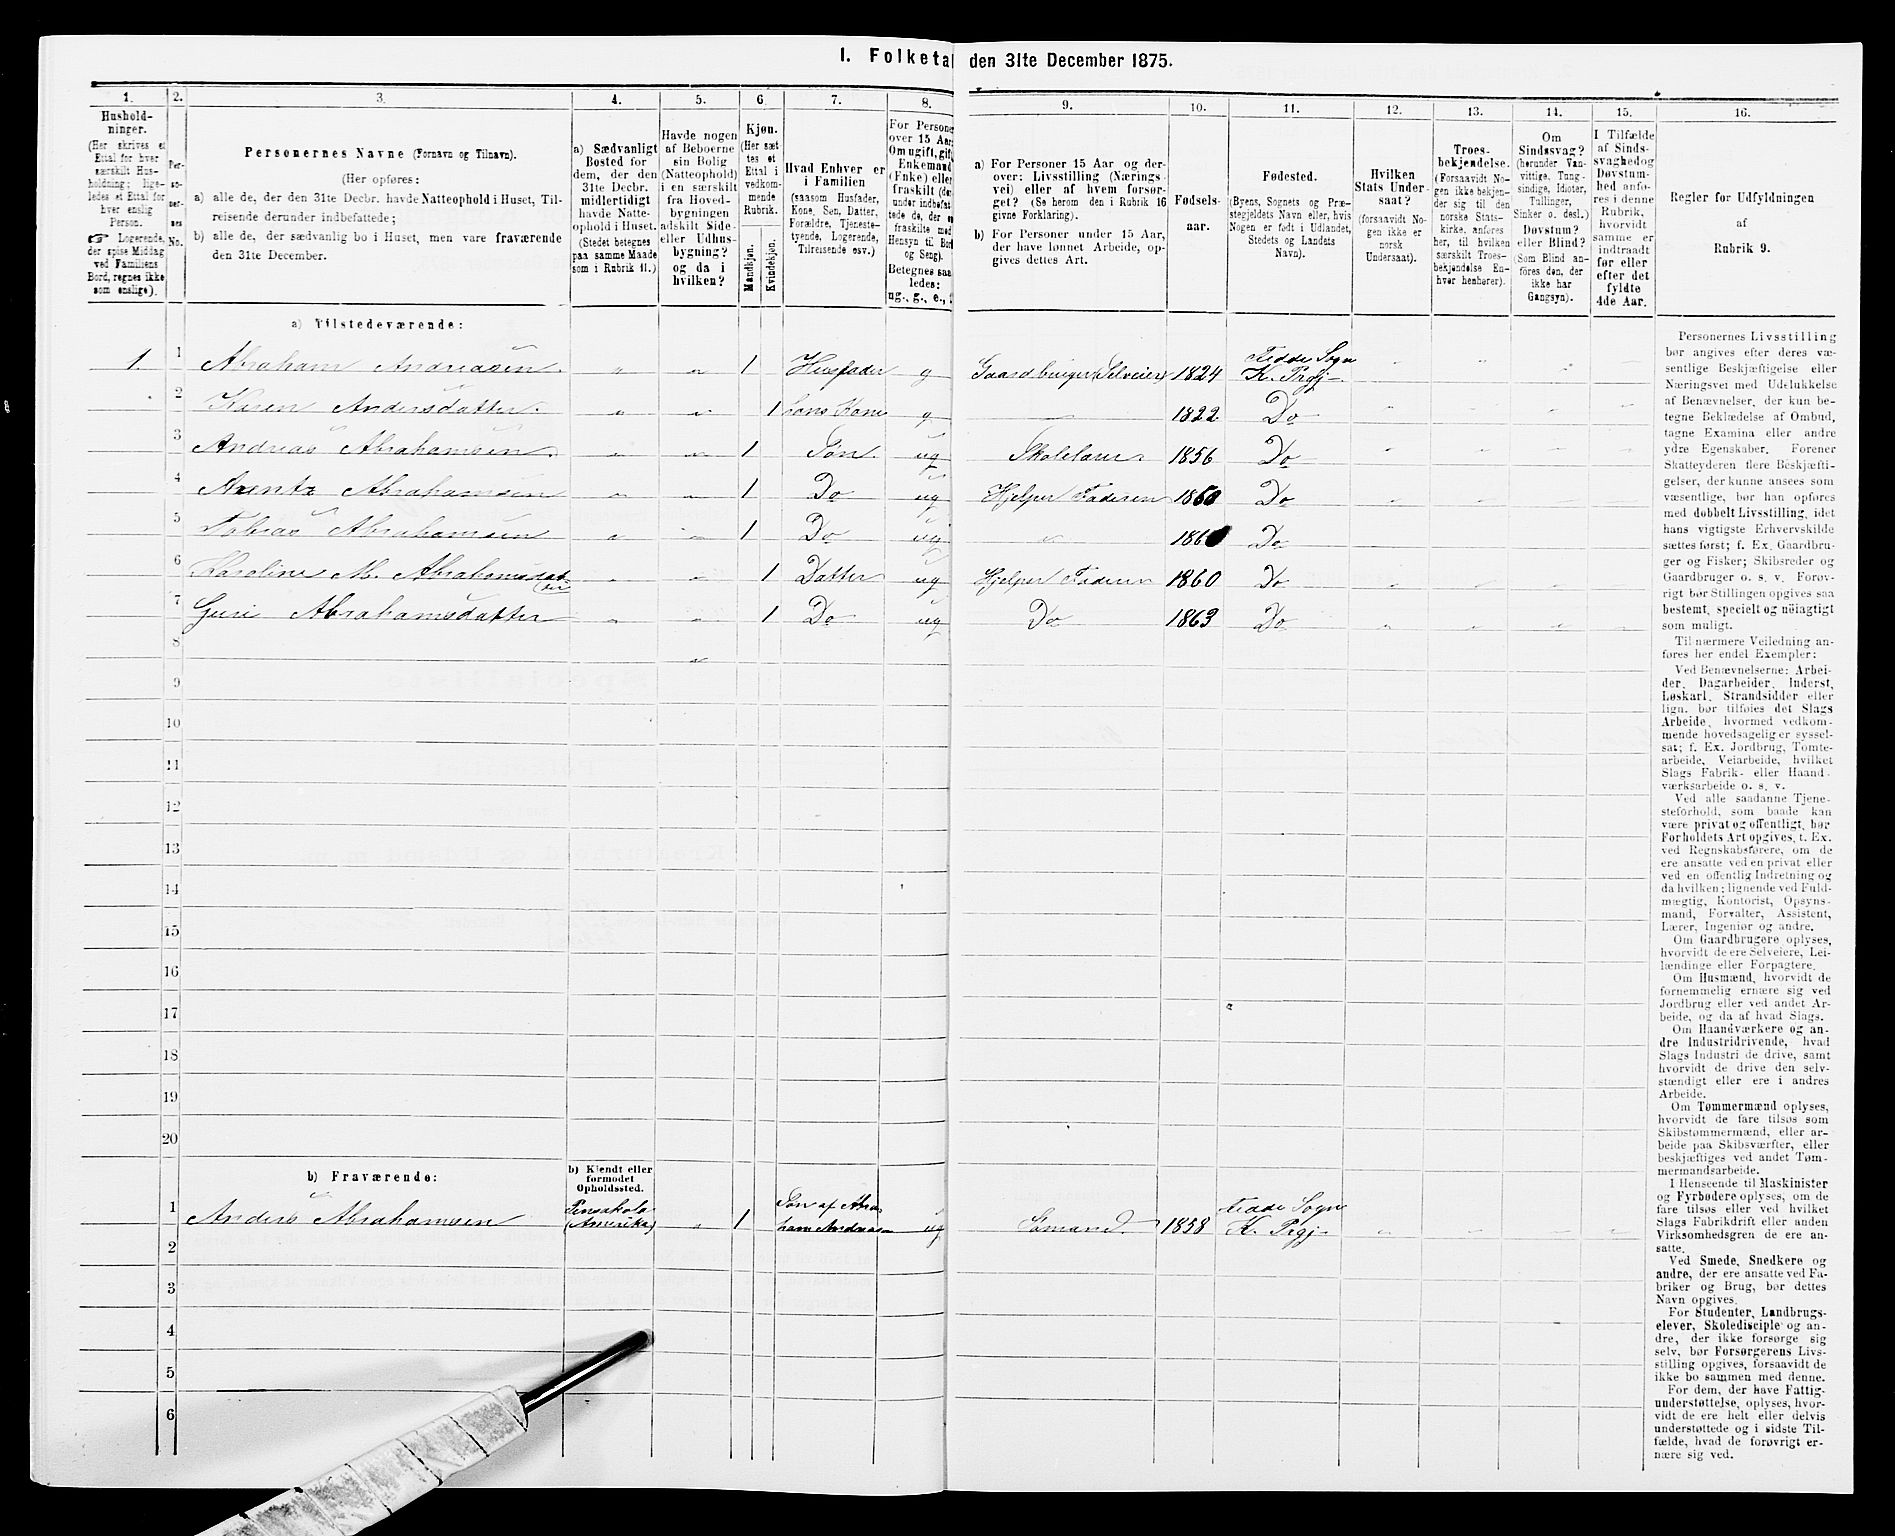 I. Folketæ
den 31te December 1875.
1.
Hushold-
ninger.
(Her skrives et
Ettal for hver
særskilt Hus-
holdning; lige-
ledes et Ettal for
hver enslig
Person.
☞ Logerende,
der spise Middag
ved Familiens
Bord, regnes ikke
som enslige).
2.
Per-
so-
ner-
nes
No.
3.
Personernes Navne (Fornavn og Tilnavn).
(Her opføres:
a) alle de, der den 31te Decbr. havde Natteophold i Huset, Til-
reisende derunder indbefattede;
b) alle de, der sædvanlig bo i Huset, men vare fraværende
den 31te December.
4.
a) Sædvanligt
Bosted for
dem, der den
31te Decbr.
midlertidigt
havde Natte-
ophold i Huset.
(Stedet betegnes
paa samme Maade
som i Rubrik 11.)
5.
Havde nogen
af Beboerne
sin Bolig
(Natteophold)
i en særskilt
fra Hoved-
bygningen
adskilt Side-
eller Udhus-
bygning?
og da i
hvilken?
6.
Kjøn.
(Her sæt
tes et
Ettal i
vedkom-
mende
Rubrik.
Mandkjøn.
Kvindekjøn.
7.
Hvad Enhver er
i Familien
(saasom Husfader,
Kone, Søn, Datter,
Forældre, Tjeneste-
tyende, Logerende,
Tilreisende osv.)
8.
For Persone
over 15 Aar
Om ugift, gif
Enkemand
(Enke) elle
fraskilt (de
under indbefat
tede de, der e
fraskilte med
Hensyn til Bor
og Seng).
Betegnes saa
ledes:
ug., g., e.,
9.
a) For Personer 15 Aar og der-
over: Livsstilling (Nærings-
vei) eller af hvem forsør-
get? (Se herom den i Rubrik 16
givne Forklaring).
b) For Personer under 15 Aar,
der have lønnet Arbeide, op-
gives dettes Art.
10.
Fødsels-
aar.
11.
Fødested.
(Byens, Sognets og Præ-
stegjeldets Navn eller, hvis
Nogen er født i Udlandet,
Stedets og Landets
Navn).
12.
Hvilken
Stats Under-
saat?
(forsaavidt No-
gen ikke er
norsk
Undersaat).
13.
Troes-
bekjendelse.
(Forsaavidt No-
gen ikke bekjen-
der sig til den
norske Stats-
kirke. anføres
her, til hvilken
særskilt Troes-
bekjendelse En-
hver henhører).
14.
Om
Sindssvag?
(herunder Van-
vittige, Tung-
sindige, Idioter,
Tullinger,
Sinker o. desl.)
Døvstum?
eller Blind?
(Som Blind an-
føres den, der
ikke har
Gangsyn).
15.
I Tilfælde
af Sinds-
svaghed og
Døvstum-
hed anfø-
res i denne
Rubrik,
hvorvidt
samme er
indtraadt
før eller
efter det
fyldte
4de Aar.
16.
Regler for Udfyldningen
af
Rubrik 9.
a) Tilstedeværende:
1. 1 Abraham Andreasen „ „ 1 Husfader g Gaardbruger (Selveier) 1824 Fedde Sogn K. Prgj „ „ „ „
2 Karen Andersdatter. „ „ 1 hans Kone g „ 1822 Do „ „ „ „
3 Andreas Abrahamsen. „ „ 1 Søn. ug Skolelærer 1856 Do „ „ „ „
4 Arentz Abrahamsen „ „ 1 Do ug Hjelper Faderen Do „ „ „ „
5 Tobias Abrahamsen „ „ 1 Do ug „ Do „ „ „ „
6 Karoline M. Abrahamsdatter „ „ 1 Datter ug Hjelper Faderen 1860 Do „ „ „ „
7 Guri Abrahamsdatter „ „ 1 Do ug Do 1863 Do „ „ „ „
8 „
9
10
11
12
13
14
15
16
17
18
19
20
b) Fraværende:
b) Kjendt eller
formodet
Opholdssted.
1 Anders Abrahamsen Pensakola (Amerika) „ 1 Søn af Abraham Andreasen ug Sømand. 1858 Fedde Sogn K. Prgj. „ „ „ „
2
3
4
5
6
Personernes Livsstilling
bør angives efter deres væ-
sentlige Beskjæftigelse eller
Næringsvei med Udelukkelse
af Benævnelser, der kun be-
tegne Beklædelse af Ombud,
tagne Examina eller andre
ydre Egenskaber. Forener
Skatteyderen flere Beskjæfti-
gelser, der kunne ansees som
væsentlige, bør han opføres
med dobbelt Livsstilling, idet
hans vigtigste Erhvervskilde
sættes først; f. Ex. Gaardbru-
ger og Fisker; Skibsreder og
Gaardbruger o. s. v. Forøv-
rigt bør Stillingen opgives saa
bestemt, specielt og nöiagtigt
som muligt.
Til nærmere Veiledning an-
føres her endel Exempler:
Ved Benævnelserne: Arbei-
der, Dagarbeider, Inderst,
Løskarl, Strandsidder eller
lign. bør tilføies det Slags
Arbeide, hvormed vedkom-
mende hovedsagelig er syssel-
sat; f. Ex. Jordbrug, Tomte-
arbeide, Veiarbeide, hvilket
Slags Fabrik- eller Haand-
værksarbeide o. s. v.
Ved alle saadanne Tjene-
steforhold, som baade kan
være privat og offentligt, bør
Forholdets Art opgives, t. Ex.
ved Regnskabsførere, om de
ere ansatte ved en privat eller
ved en offentlig Indretning og
da hvilken; lignende ved Fuld-
mægtig, Kontorist, Opsyns-
mand, Forvalter, Assistent,
Lærer, Ingeniør og andre.
Om Gaardbrugere oplyses,
hvorvidt de ere Selveiere, Lei-
lændinge eller Forpagtere.
Om Husmænd, hvorvidt de
fornemmelig ernære sig ved
Jordbrug eller ved andet Ar-
beide, og da af hvad Slags.
Om Haandværkere og an-
dre Industridrivende, hvad
Slags Industri de drive, samt
hvorvidt de drive den selv-
stændigt eller ere i andres
Arbeide.
Om Tømmermænd oplyses,
hvorvidt de fare tilsøs som
Skibstømmermænd, eller ar-
beide paa Skibsværfter, eller
beskjæftiges ved andet Tøm-
mermandsarbeide.
I Henseende til Maskinister
og Fyrbødere oplyses, om de
fare tilsøs eller ved hvilket
Slags Fabrikdrift eller anden
Virksomhedsgren de ere an-
satte.
Ved Smede, Snedkere og
andre, der ere ansatte ved Fa-
briker og Brug, bør dettes
Navn opgives.
For Studenter, Landbrugs-
elever, Skoledisciple og an-
dre, der ikke forsørge sig
selv, bør Forsørgerens Livs-
stilling opgives, forsaavidt de
ikke bo sammen med denne.
For dem, der have Fattig-
understøttelse, oplyses, hvor-
vidt de ere helt eller delvis
understøttede og i sidste Til-
fælde, hvad de forøvrigt er-
nære sig ved.